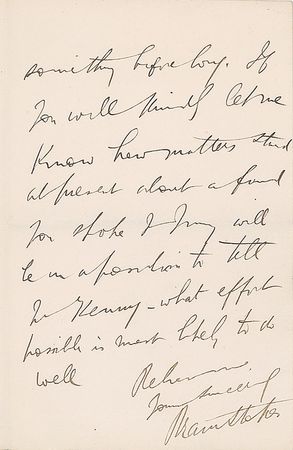 something before long. If
you will kindly let me
know how matters stand
at present about a fund
you spoke of I may will
be in a position to tell
Mr Kenny - what effort
possible is most likely to do
well
Believe me
Yours sincerely
Bram Stoker